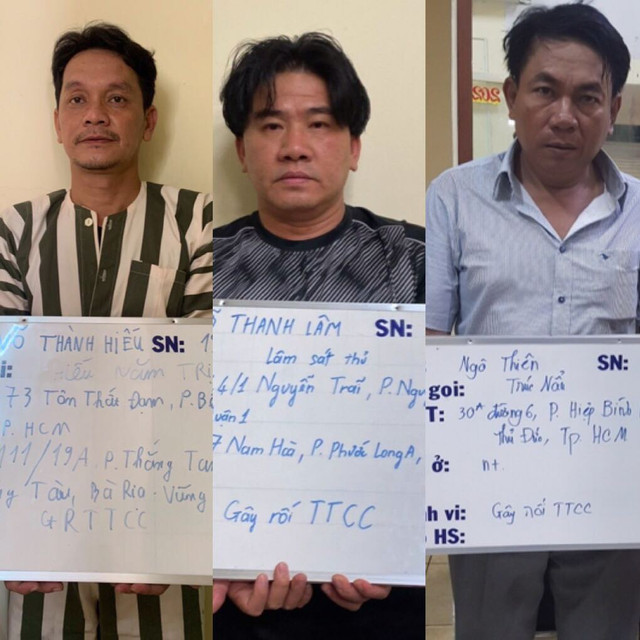 THÀNH HIẾU SN: 1
HIẾU NĂM
73 Tôn Thất Đạm, P. B
P. HCM
111/19A P. Thắng Ta
Tàu, Bà Rịa Vũng
GRTTCC
THANH LÂM SN:
Lâm sát thủ
4/1 Nguyễn Trãi, P. Ngu
uận 1
7 Nam Hoà, P. Phước Long A,
Gây rối TTCC
Ngô Thiên SN:
gọi: Trúc
T: 30A đường 6, P. Hiệp Bình
Thủ Đức, Tp HCM
ở: nt.
h vi: Gây rối TTCC
HS: